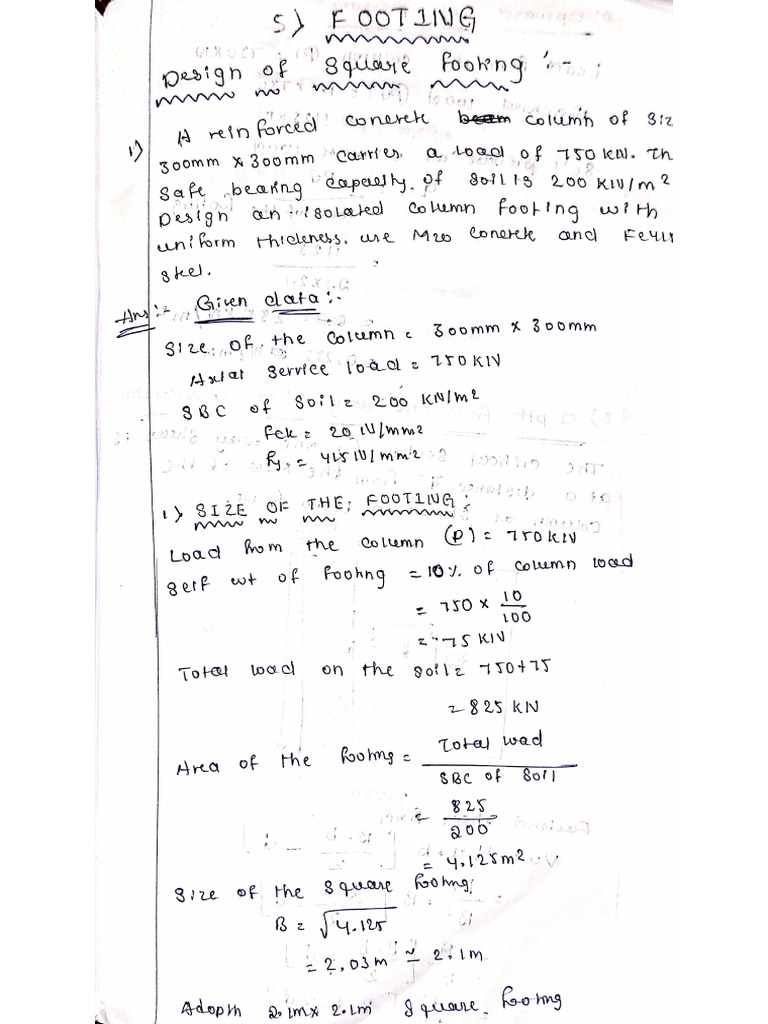 5) FOOTING
Design of square footing :-
1) A reinforced concrete column of siz
300mm x 300mm carries a load of 750 KN. Th
safe bearing capacity of soil is 200 KN/m2
Design an isolated column footing with
uniform thickness. use M20 concrete and Fe415
steel.
Ans :- Given data :-
Size of the column = 300mm x 300mm
Axial service load = 750 KN
SBC of soil = 200 KN/m2
Fck = 20 N/mm2
Fy = 415 N/mm2
1) SIZE OF THE FOOTING :
Load from the column (P) = 750 KN
Self wt of footing = 10% of column load
= 750 x 10/100
= 75 KN
Total load on the soil = 750+75
= 825 KN
Area of the footing = Total load / SBC of soil
= 825/200
= 4.125m2
Size of the square footing
B = √4.125
= 2.03m ≃ 2.1m
Adopth 2.1m x 2.1m square footing